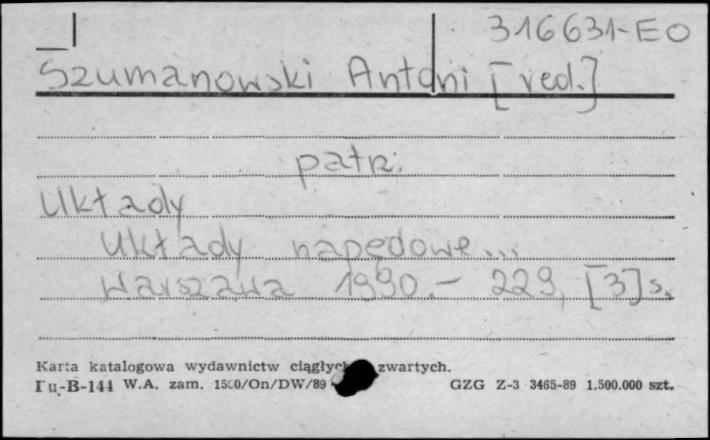 316631-EO
Szumanowski Antoni [red.]
patrz:
Układy
Układy napędowe...
Warszawa 1990.- 229, [3] s.
Karta katalogowa wydawnictw ciągłych zwartych.
Pu-B-144 W.A. zam. 1500/On/DW/89 GZG Z-3 3465-89 1.500.000 szt.